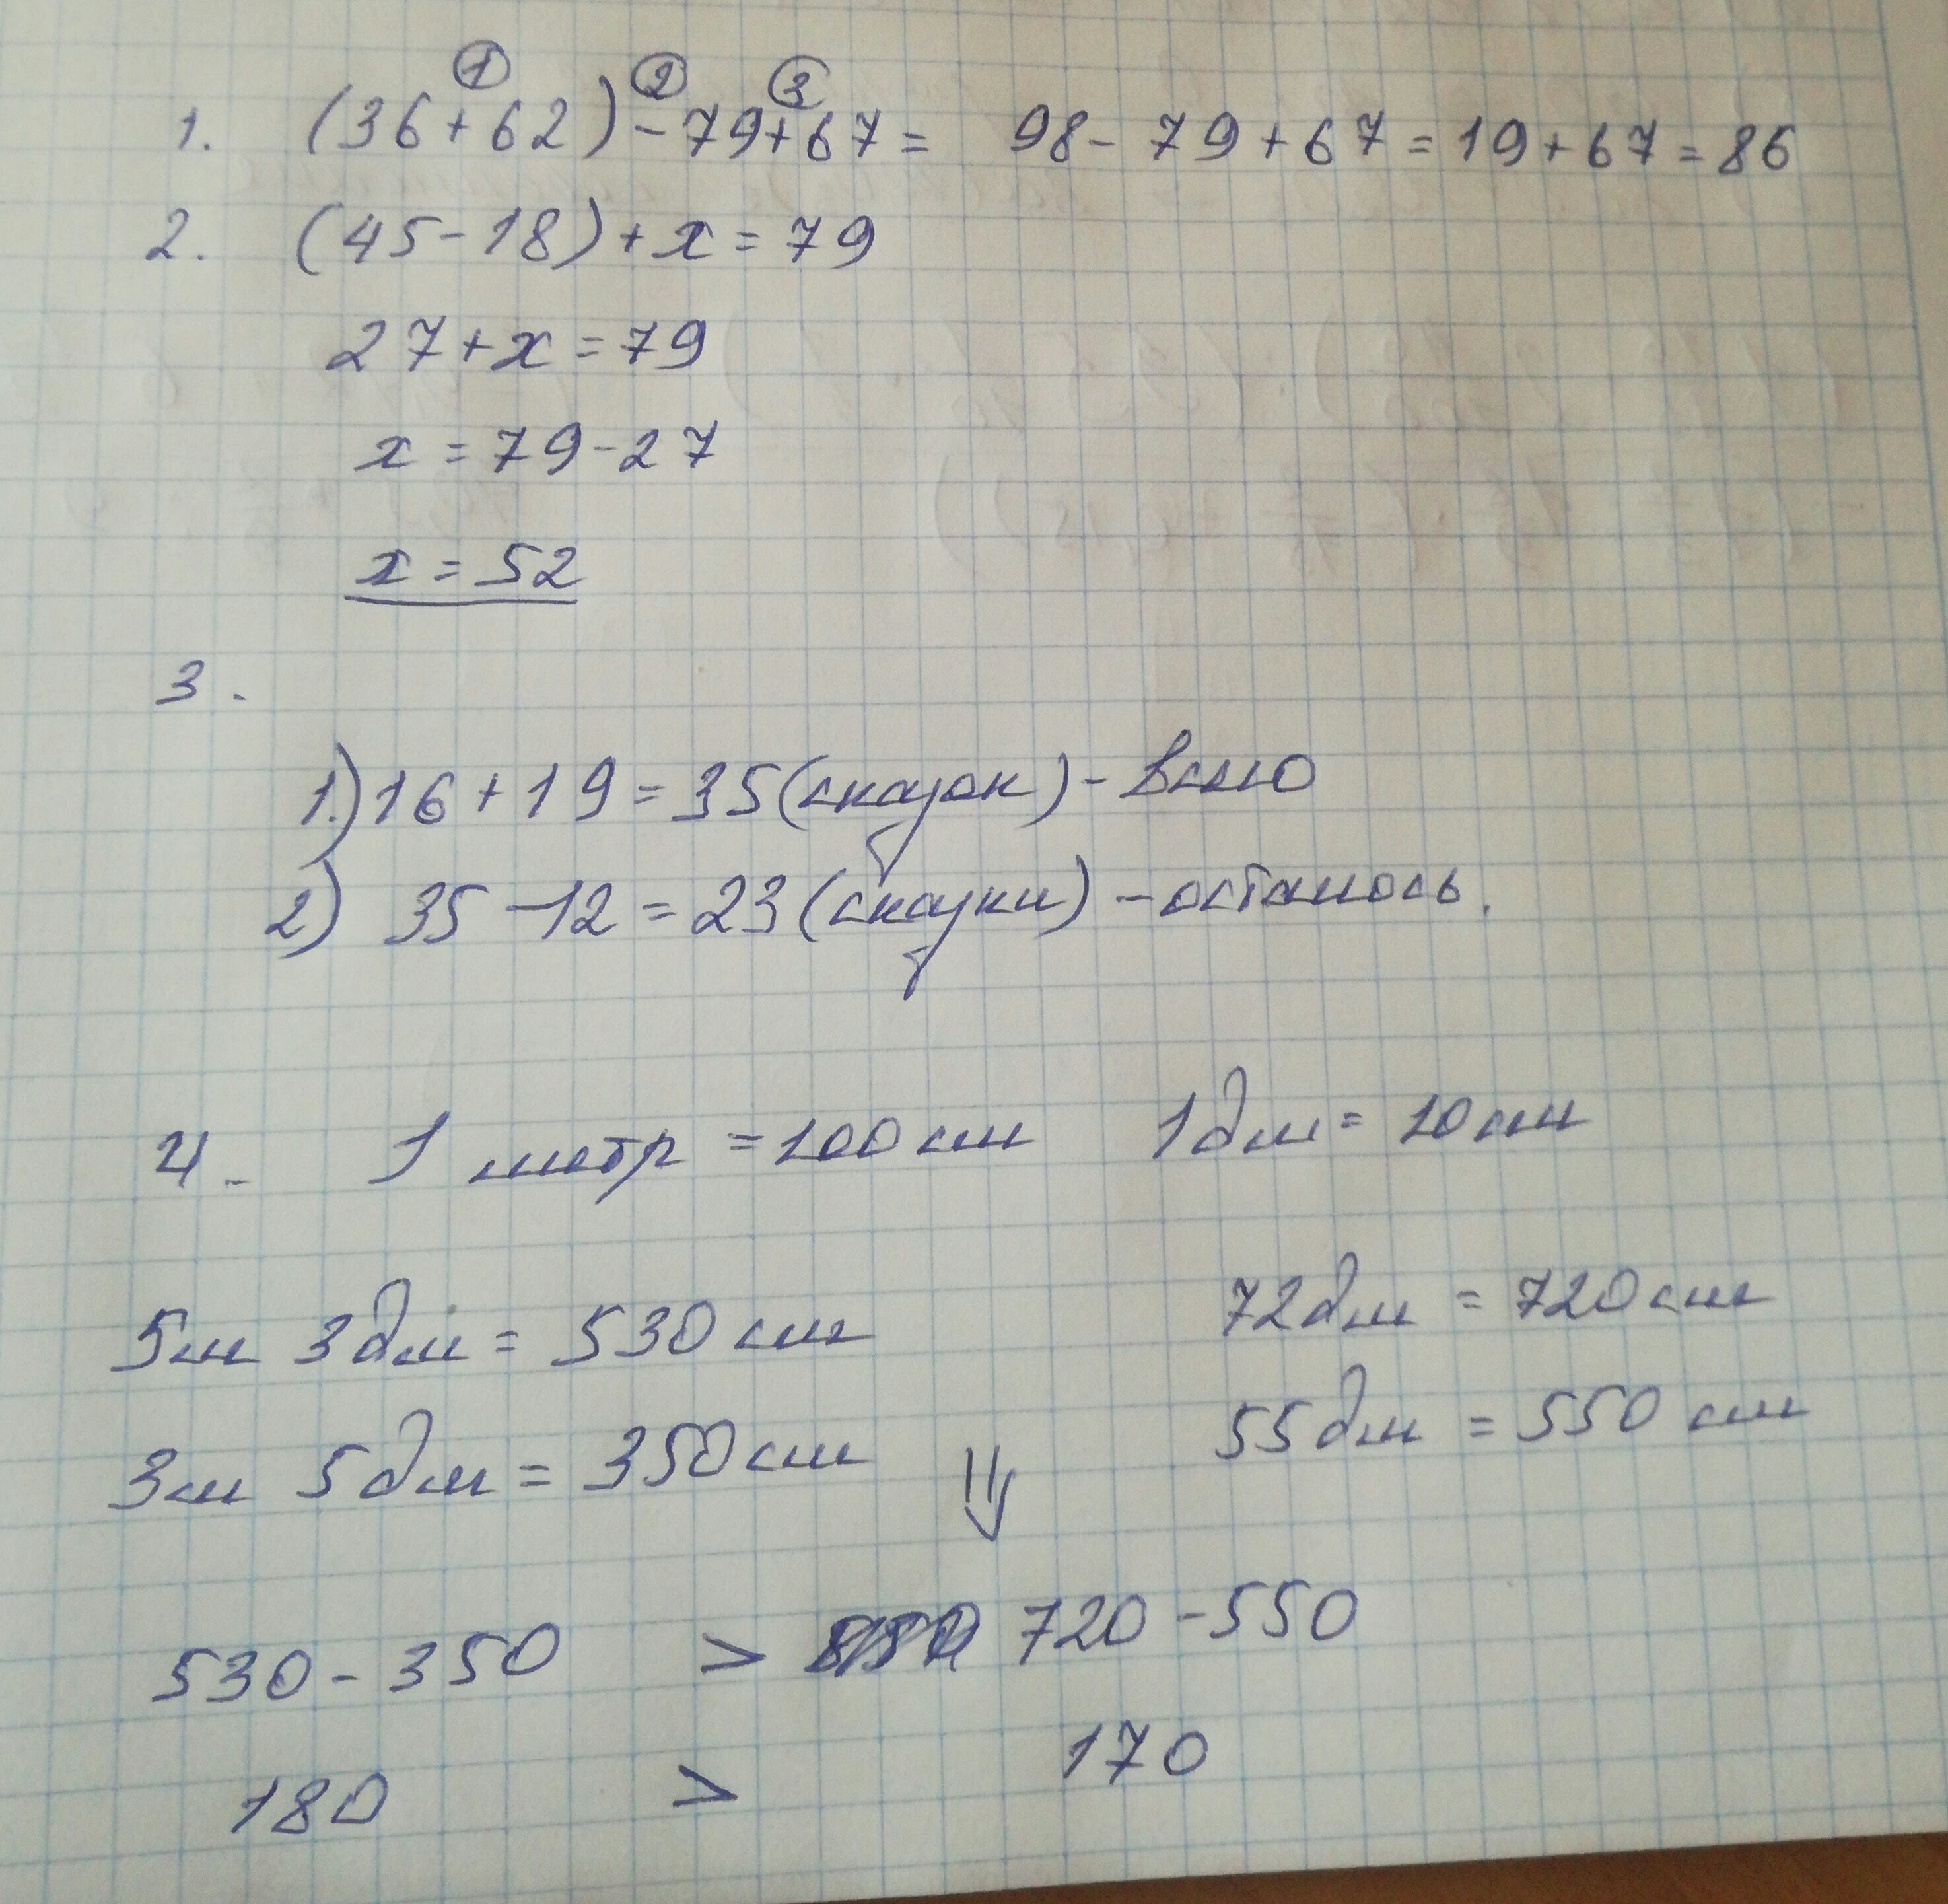 ① ② ③
1. (36+62)-79+67= 98-79+67=19+67=86
2. (45-18)+x=79
27+x=79
x=79-27
x=52
3.
1.) 16+19=35(сказок)-всего
2) 35-12=23(сказки)-осталось.
4. 1 метр =100см 1дм=10см
5м 3дм=530см 72дм=720см
3м 5дм=350см ⇓ 55дм=550 см
530-350 > 720-550
180 > 170